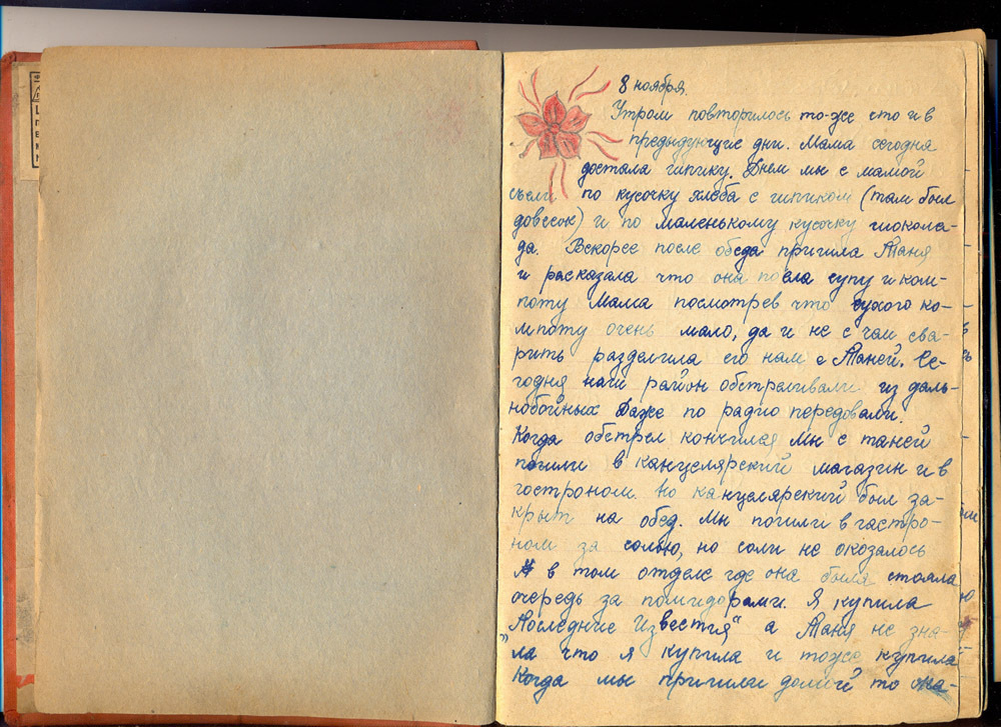 8 ноября.
Утром повторилось то-же сто и в
предыдующие дни. Мама сегодня
достала шпику. Днем мы с мамой
съели по кусочку хлеба с шпиком (там был
довесок) и по маленькому кусочку шокола-
да. Вскорее после обеда пришла Таня
и расказала что она поела супу и ком-
поту Мама посмотрев что сухого ко-
мпоту очень мало, да и не с чем сва-
рить разделила его нам с Таней. Се-
годня наш район обстреливали из даль-
нобойных Даже по радио передовали.
Когда обстрел кончился мы с таней
пошли в канцелярский магазин и в
гостроном. Но канцелярский был за-
крыт на обед. Мы пошли в гастро-
ном за солью, но соли не оказолось
в том отделе где она была стояла
очередь за помидорами. Я купила
"Последние Известия" а Таня не зна-
ла что я купила и тоже купила
Когда мы пришли домой то ма-